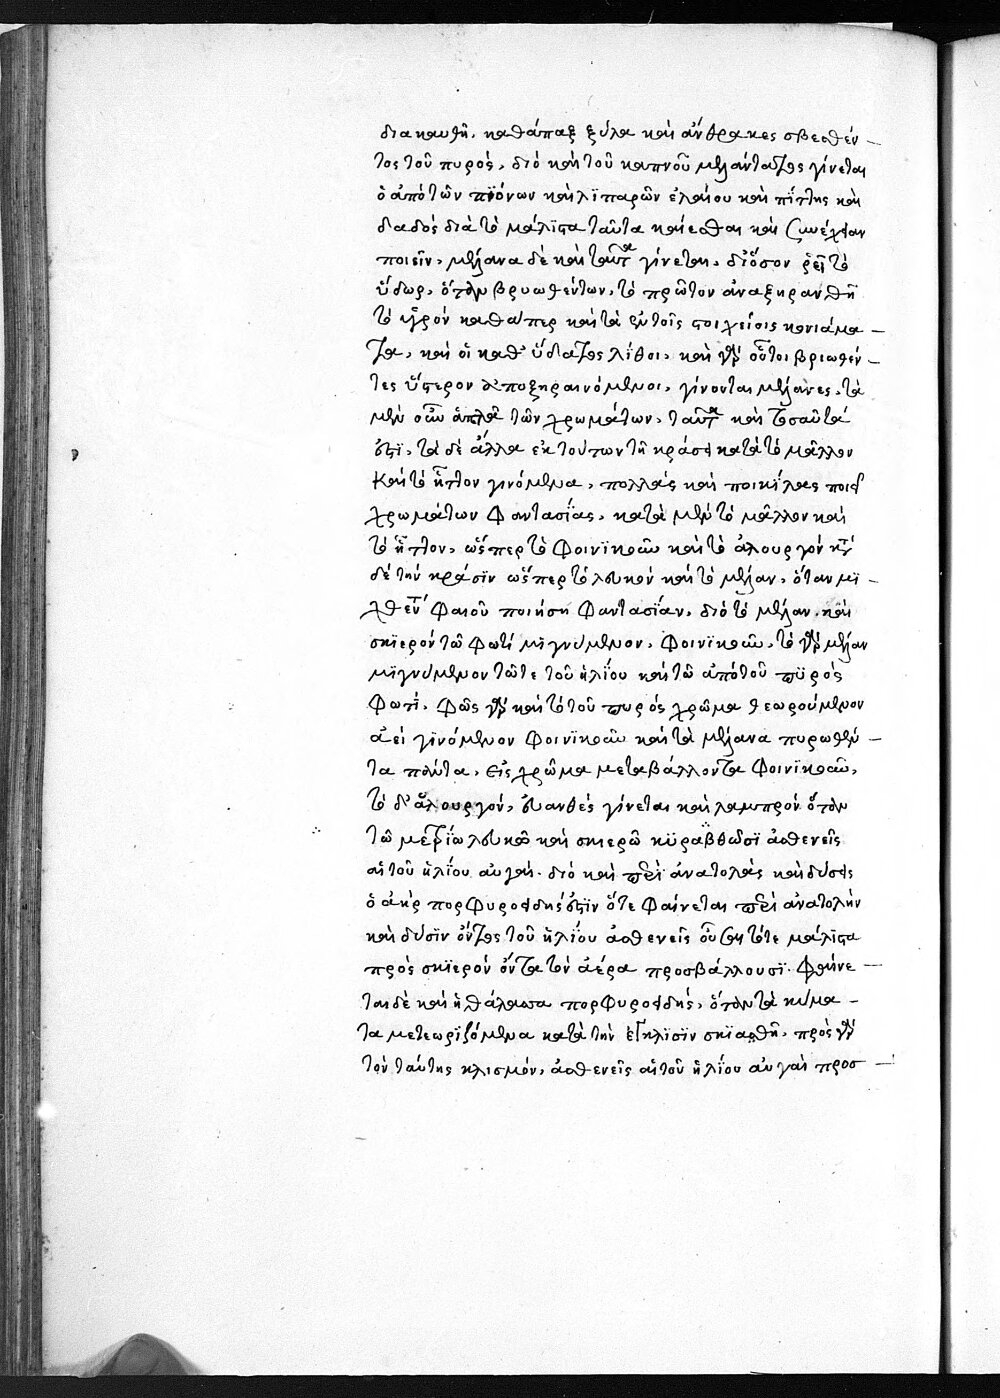 διακαυθῆ. καθάπαξ ξύλα καὶ ἄνθρακες σβεσθέν —
τος τοῦ πυρός, διὸ καὶ τοῦ καπνοῦ μελάντατος γίνεται
ὁ ἀπὸ τῶν πϊόνων καὶ λϊπαρῶν ἐλαίου καὶ πίττης καὶ
δαδός διὰ τὸ μάλϊστα ταῦτα καίεσθαι καὶ συνέχειαν
ποιεῖν, μέλανα δὲ καὶ ταῦτα γίνεται, δι᾽ ὅσον ῥεῖ τὸ
ὕδωρ, ὅταν βρυωθέντων, τὸ πρῶτον ἀναξηρανθῆ
τὸ ὑγρόν καθάπερ καὶ τὰ ἐν τοῖς στοιχείοις κονιάμα —
τα, καὶ οἱ καθ᾽ ὕδατος λίθοι, καὶ γὰρ οὗτοι βριωθέν —
τες ὕστερον ἀποξηραινόμενοι, γίνονται μέλανες, τὰ
μὲν οὖν ἁπλᾶ τῶν χρωμάτων, ταῦτα καὶ τοσαῦτά
ἐστϊ, τὰ δὲ ἄλλα ἐκ τούτων τῆ κράσει κατὰ τὸ μᾶλλον
καὶ τὸ ἧττον γινόμενα, πολλὰς καὶ ποικίλας ποιεῖ
χρωμάτων φαντασίας, κατὰ μὲν τὸ μᾶλλον καὶ
τὸ ἧττον, ὥσπερ τὸ φοινϊκοῦν καὶ τὸ ἁλουργόν κατὰ
δὲ τὴν κράσϊν ὥσπερ τὸ λευκόν καὶ τὸ μέλαν, ὅταν μϊ —
χθέντα φαιοῦ ποιήση φαντασίαν, διὸ τὸ μέλαν καὶ
σκϊερόν τῶ φωτί μϊγνύμενον, φοινϊκοῦν, τὸ γὰρ μέλαν
μϊγνύμενον τῶ τε τοῦ ἡλίου καὶ τῶ ἀπὸ τοῦ πϋρός
φωτί. φῶς γὰρ καὶ τὸ τοῦ πυρός χρῶμα θεωρούμενον
ἀεὶ γϊνόμενον φοινϊκοῦν καὶ τὰ μέλανα πυρωθέν —
τα πάντα, εἰς χρῶμα μεταβάλλοντα φοινϊκοῦν,
τὸ δ᾽ ἁλουργόν, εὐανθές γίνεται καὶ λαμπρόν ὅταν
τῶ μετρίω λευκῶ καὶ σκιερῶ κϋραβθῶσϊ ἀσθενεῖς
αἱ τοῦ ἡλίου αὐγαί. διὸ καὶ περὶ ἀνατολὰς καὶ δύσεις
ὁ ἀὴρ πορφυροειδής ἐστϊν ὅτε φαίνεται περὶ ἀνατολήν
καὶ δύσϊν ὄντος τοῦ ἡλίου ἀσθενεῖς οὖσαι τότε μάλϊστα
πρὸς σκϊερόν ὄντα τὸν ἀέρα προσβάλλουσϊ. φαίνε —
ται δὲ καὶ ἡ θάλασσα πορφυροειδής, ὅταν τὰ κύμα —
τα μετεωρϊζόμενα κατὰ τὴν ἔγκλϊσϊν σκϊασθῆ. πρὸς γὰρ
τὸν ταύτης κλισμόν, ἀσθενεῖς αἱ τοῦ ἡλίου αὐγαὶ προσ —